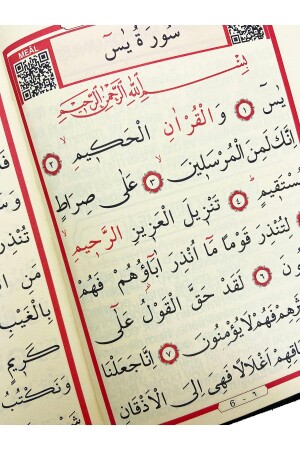 MEÂL
سُورَةُ يٰسٓ
بِسْمِ اللّٰهِ الرَّحْمٰنِ الرَّحِيمِ
يٰسٓ ١ وَالْقُرْاٰنِ الْحَكِيمِ ٢
اِنَّكَ لَمِنَ الْمُرْسَلِينَ ٣ عَلٰى صِرَاطٍ
مُسْتَقِيمٍ ٤ تَنْزِيلَ الْعَزِيزِ الرَّحِيمِ
لِتُنْذِرَ قَوْمًا مَٓا اُنْذِرَ اٰبَٓاؤُهُمْ فَهُمْ
لَقَدْ حَقَّ الْقَوْلُ عَلٰٓى
فَهُمْ لَا يُؤْمِنُونَ ٧ اِنَّا جَعَلْنَا
اَغْلَالًا فَهِىَ اِلَى الْاَذْقَانِ
6 - ٦
تُنْذِرْ
مَنِ
بِالْغَيْبِ
كَرِيمٍ
وَنَكْتُبُ